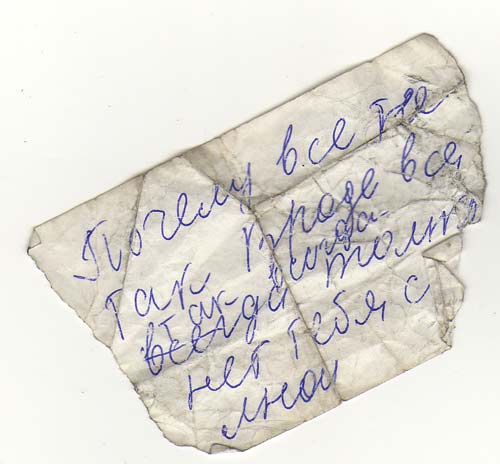 Почему все не
так вроде все
Так всегда
всегда только
нет тебя с
мной